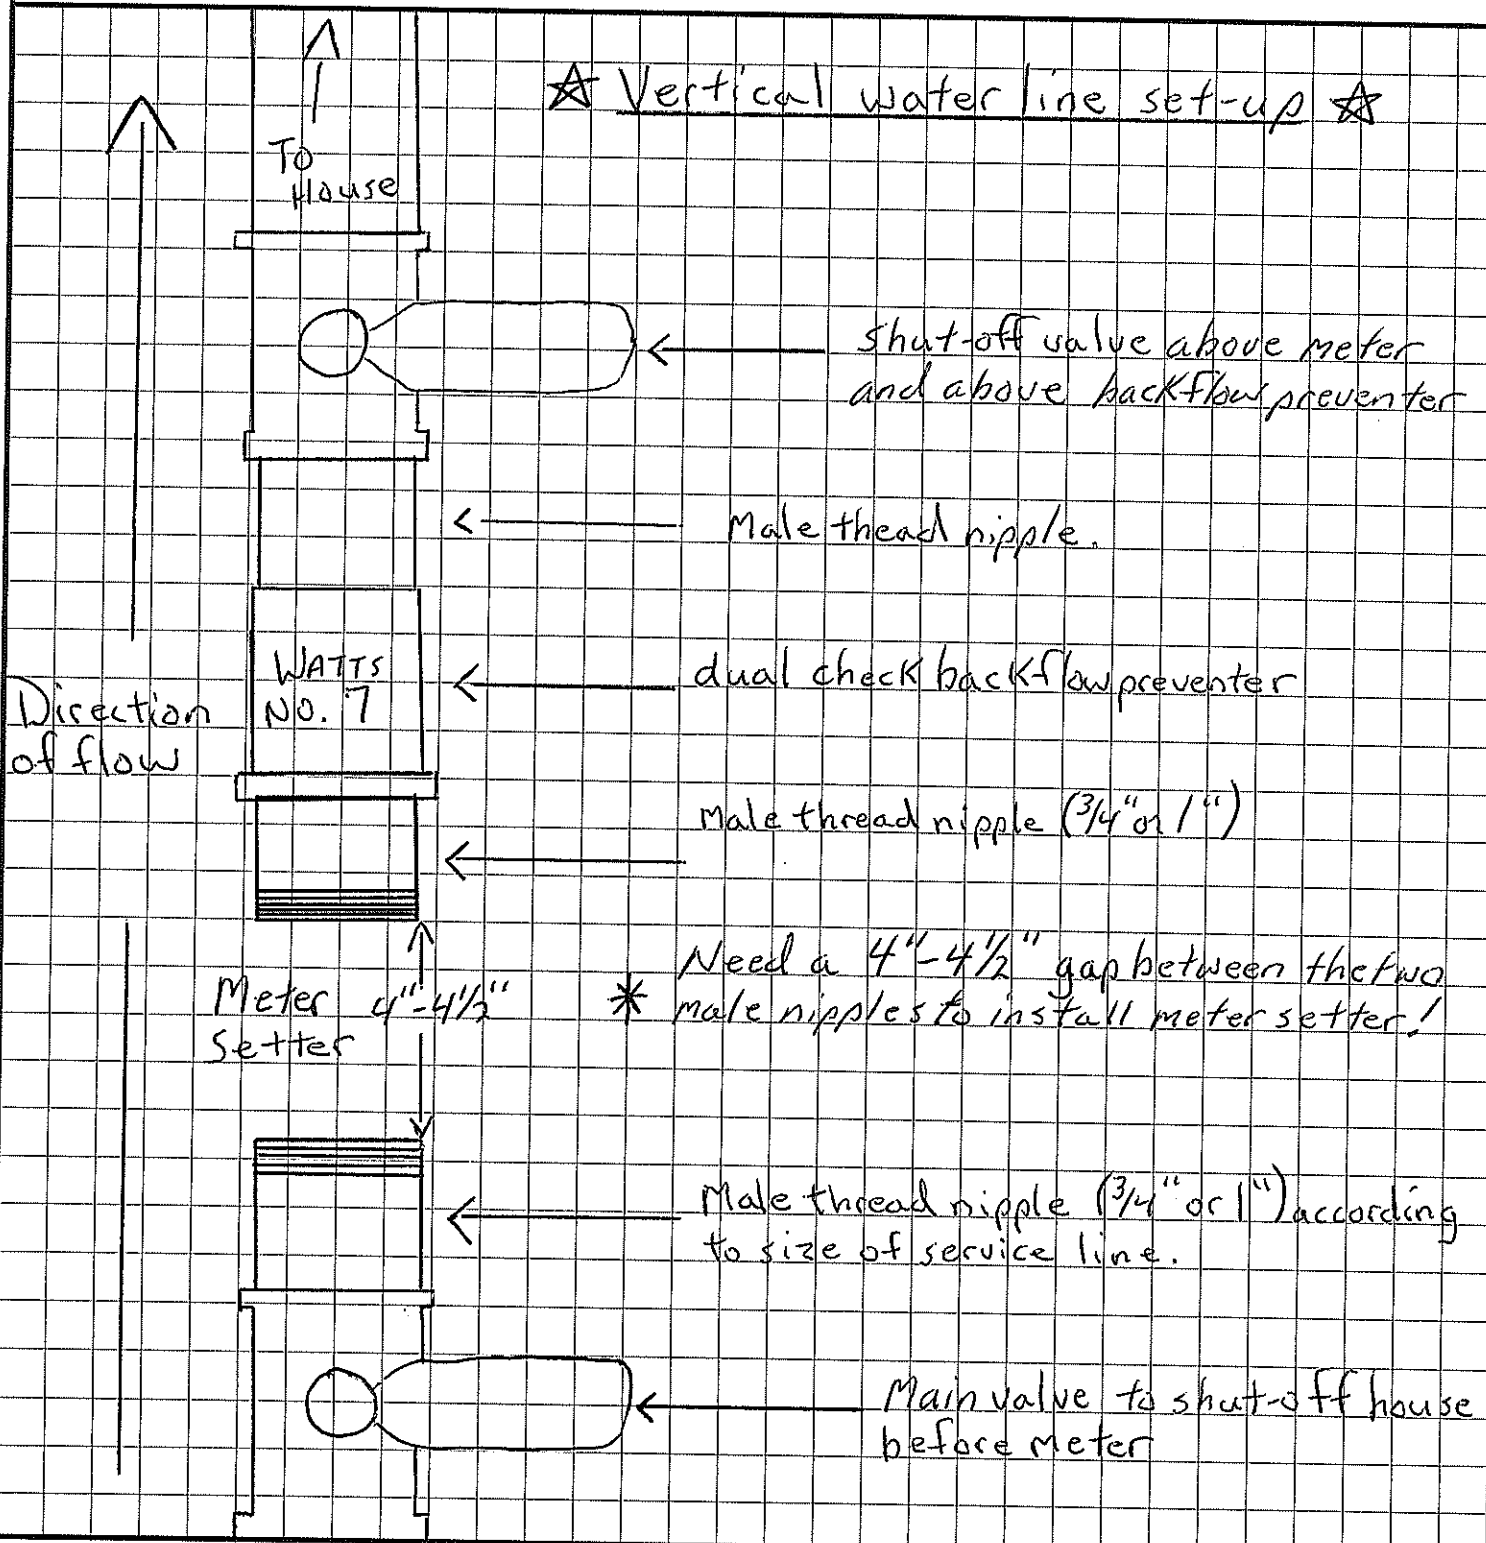 ☆ Vertical water line set-up ☆
To
House
shut-off valve above meter
and above backflow preventer
Male thead nipple.
WATTS
NO. 7
dual check backflow preventer
Direction
of flow
Male thread nipple (3/4" or 1")
Need a 4"-4 1/2" gap between the two
* male nipples to install meter setter!
Meter 4"-4 1/2"
Setter
Male thread nipple (3/4" or 1") according
to size of service line.
Main valve to shut-off house
before meter